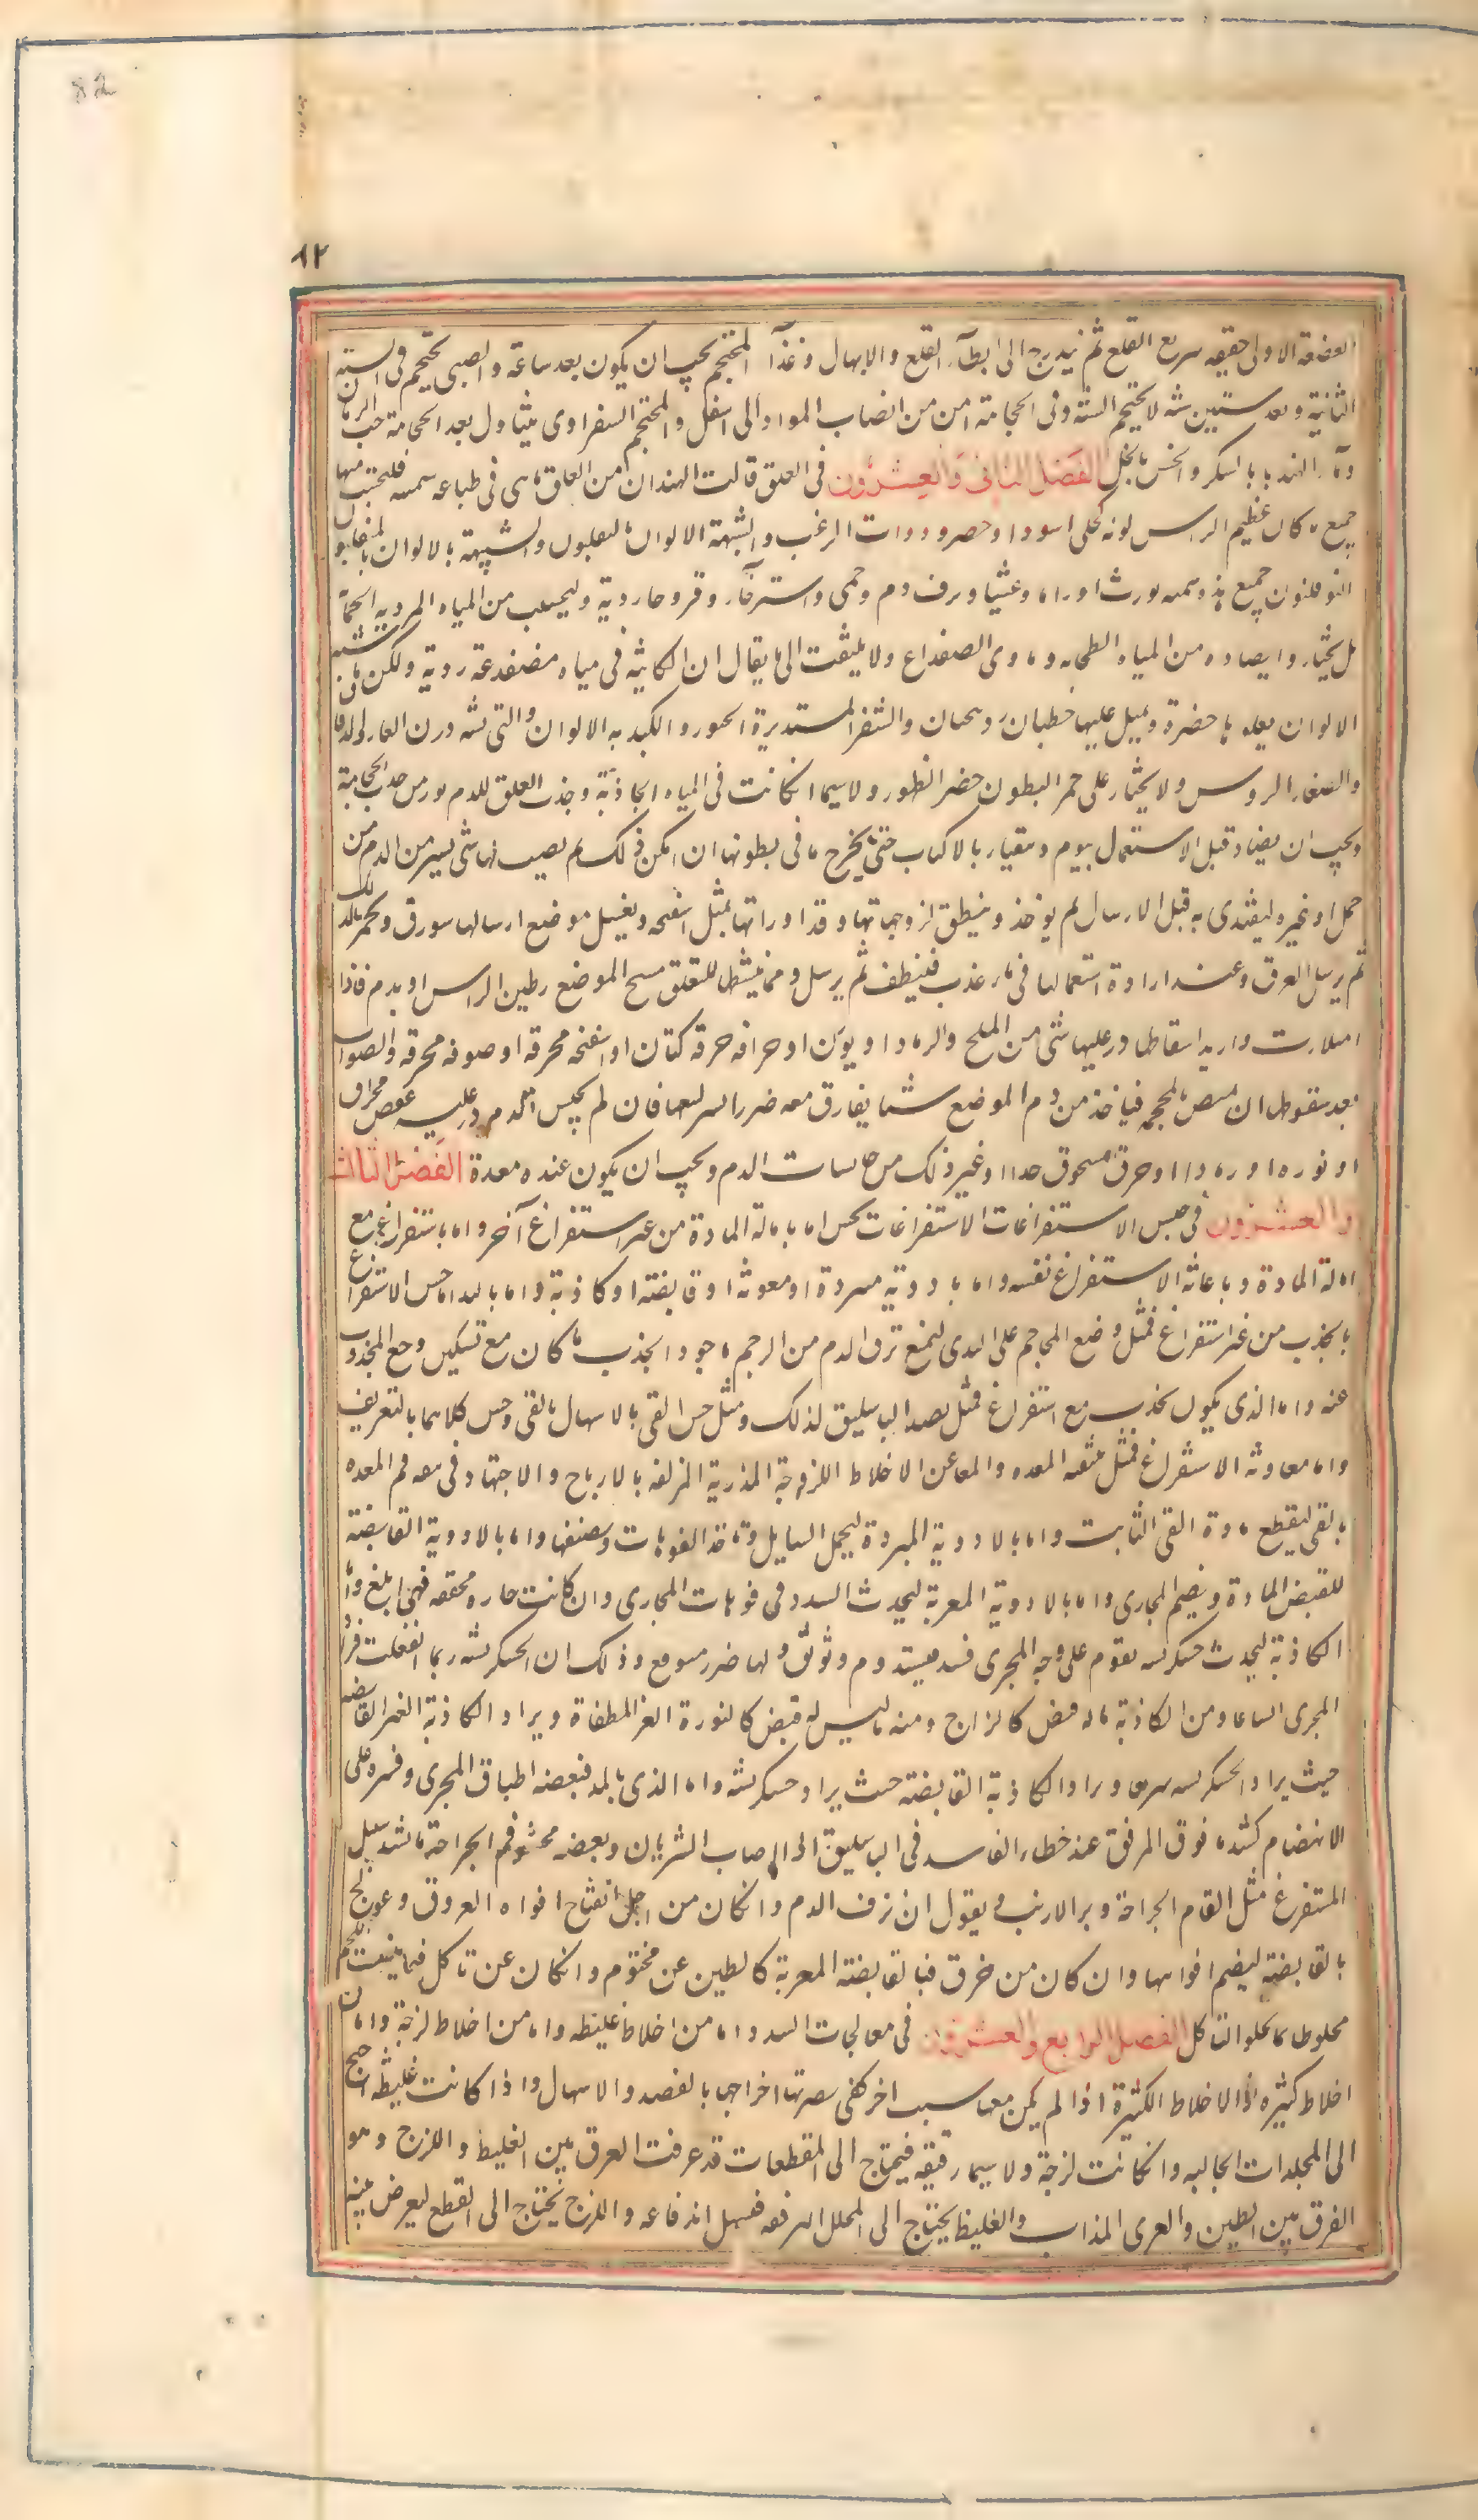 82
٨٢
الوضعة الاولى خفيفه سريع القلع ثم يتدرج الى ابطآء القلع والامهال وغذآ المحتجم يجب ان يكون بعد ساعة والصبى يحتجم فى السنة
الثانية وبعد ستين سنه لا يحتجم البتة وفى الحجامة امن من انصاب المواد الى اسفل والمحتجم الصفراوى يتناول بعد الحجامة حب الرمان
ومآء الهندبا بالسكر والخس بالخل الفصل الثانى والعشرون فى العلق قالت الهند ان من العلق ما فى طباعه سميه فليجتنب منها
جميع ما كان عظيم الراس لونه كحلى اسود او اخضر وذوات الزغب والشبيهة بالالوان
جميع هذه سميه يورث اوراما وغشيا ونزف دم وحمى واسترخآء وقروحا ردية وليجتنب من المياه الردية الحمآة
بل يختار ما يصاد من المياه الطحلبية وماوى الضفداع ولا يلتفت الى ما يقال ان الكائنة فى مياه مضفدعة ردية ولكن
الالوان يعلوها خضرة ويميل عليها خطان زرنيخيان والشقر المستديرة الجنوب والكبدية الالوان والتى تشبه
والصغار الروس ولا يختار على حمر البطون خضر الظهور ولا سيما ان كانت فى المياه الجارية وجذب العلق للدم
ويجب ان يصاد قبل الاستعمال بيوم ويتقيا بالاكباب حتى يخرج ما فى بطونها ان امكن ذلك ثم يصب لها شى يسير من الدم من
حمل او غيره ليغتذى به قبل الارسال ثم يوخذ وينظف لزوجاتها وقذاوراتها بمثل اسفنجه ويغسل موضع ارسالها ببورق ويحمر بالدلك
ثم يرسل العلق وعند ارادة استعمالها فى مآء عذب فينظف ثم يرسل ومما ينشطها للتعلق مسح الموضع بطين الراس او بدم فاذا
امتلات واريد اسقاطها ذر عليها شى من الملح والرماد او بورق او حراقه خرقة كتان او اسفنجه محرقه او صوفه محرقه والصواب
بعد سقوطها ان يمص بالمحجمه فياخذ من دم الموضع شيا يفارق معه ضرر اثر لسعها فان لم يحتبس الدم ذر عليه عفص محرق
او نوره او رماد او خزف مسحوق جدا او غير ذلك من حابسات الدم ويجب ان يكون عنده معدة الفصل الثالث
والعشرون فى حبس الاستفراغات الاستفراغات تحبس اما بامالة المادة من غير استفراغ آخر واما باستفراغ مع
امالة المادة وباعانة الاستفراغ نفسه واما بادوية مبردة او مغرية او قابضة او كاوية واما بالشد اما حبس الاستفراغ
بالجذب من غير استفراغ فمثل وضع المحاجم على الثدى ليمنع نزف الدم من الرحم واجود الجذب ما كان مع تسكين وجع المجذوب
عنه واما الذى يكون بجذب مع استفراغ فمثل فصد الباسليق لذلك ومثل حبس القى بالاسهال والاسهال بالقى وحبس كلاهما بالتعريق
واما معاونة الاستفراغ فمثل تنقيه المعده والمعا عن الاخلاط اللزجة المذربة المزلقه بالايارج والاجتهاد فى تنقيه فم المعده
بالقى ليقطع مادة القى الثابت واما بالادوية المبردة ليجمد السايل وتاخذ الفوهات وتضيقها واما بالادوية القابضة
للقبض المادة ويضم المجارى واما بالادوية المغرية ليحدث السدد فى فوهات المجارى وان كانت حاره مجففه فهى ابلغ واما
الكاوية ليحدث خشكريشه تقوم على وجه المجرى فيسد ويستد ويوثق ولها ضرر متوقع وذلك ان الخشكريشه ربما انقلعت فزاد
المجرى اتساعا ومن الكاوية ما له قبض كالزاج ومنه ما ليس له قبض كالنورة الغير المطفاة ويراد الكاوية الغير القابضه
حيث يراد خشكريشه سريعا ويراد الكاوية القابضة حيث يراد خشكريشه واما الذى بالشد فبعضه اطباق المجرى وقسره على
الانضمام كشد ما فوق المرفق عند خطاء الفاصد فى الباسليق اذا اصاب الشريان وبعضه محشو فم الجراحة ما يسد سبيل
المستفرغ مثل القام الجراحة وبر الارنب ونقول ان نزف الدم ان كان من اجل انفتاح افواه العروق وعولج
بالقابضة ليضم افواهها وان كان من خرق فبالقابضة المغرية كالطين عن مختوم وان كان عن تاكل فبما ينبت اللحم
مخلوطا بما يجلو التاكل الفصل الرابع والعشرون فى معالجات السدد اما من اخلاط غليظه واما من اخلاط لزجة واما من
اخلاط كثيره اذا الاخلاط الكثيرة اذا لم يكن معها سبب اخر كفى مضرتها اخراجها بالفصد والاسهال واذا كانت غليظه احتيج
الى المحللات الجاليه وان كانت لزجة ولا سيما رقيقه فيحتاج الى المقطعات قد عرفت الفرق بين الغليظ واللزج وهو
الفرق بين الطين والغرى المذاب والغليظ يحتاج الى المحلل ليرققه فيسهل اندفاعه واللزج يحتاج الى القطع ليعرض بينه